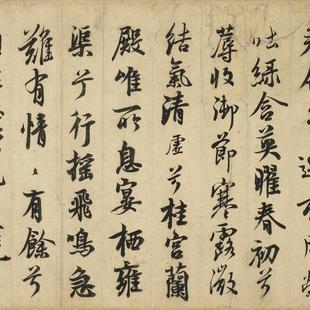 吐綠含英曜春初兮
蓐收御節寒露微
結氣清虛兮桂宮蘭
殿唯所息宴棲雍
渠兮行搖飛鳴急
難有情〻有餘兮